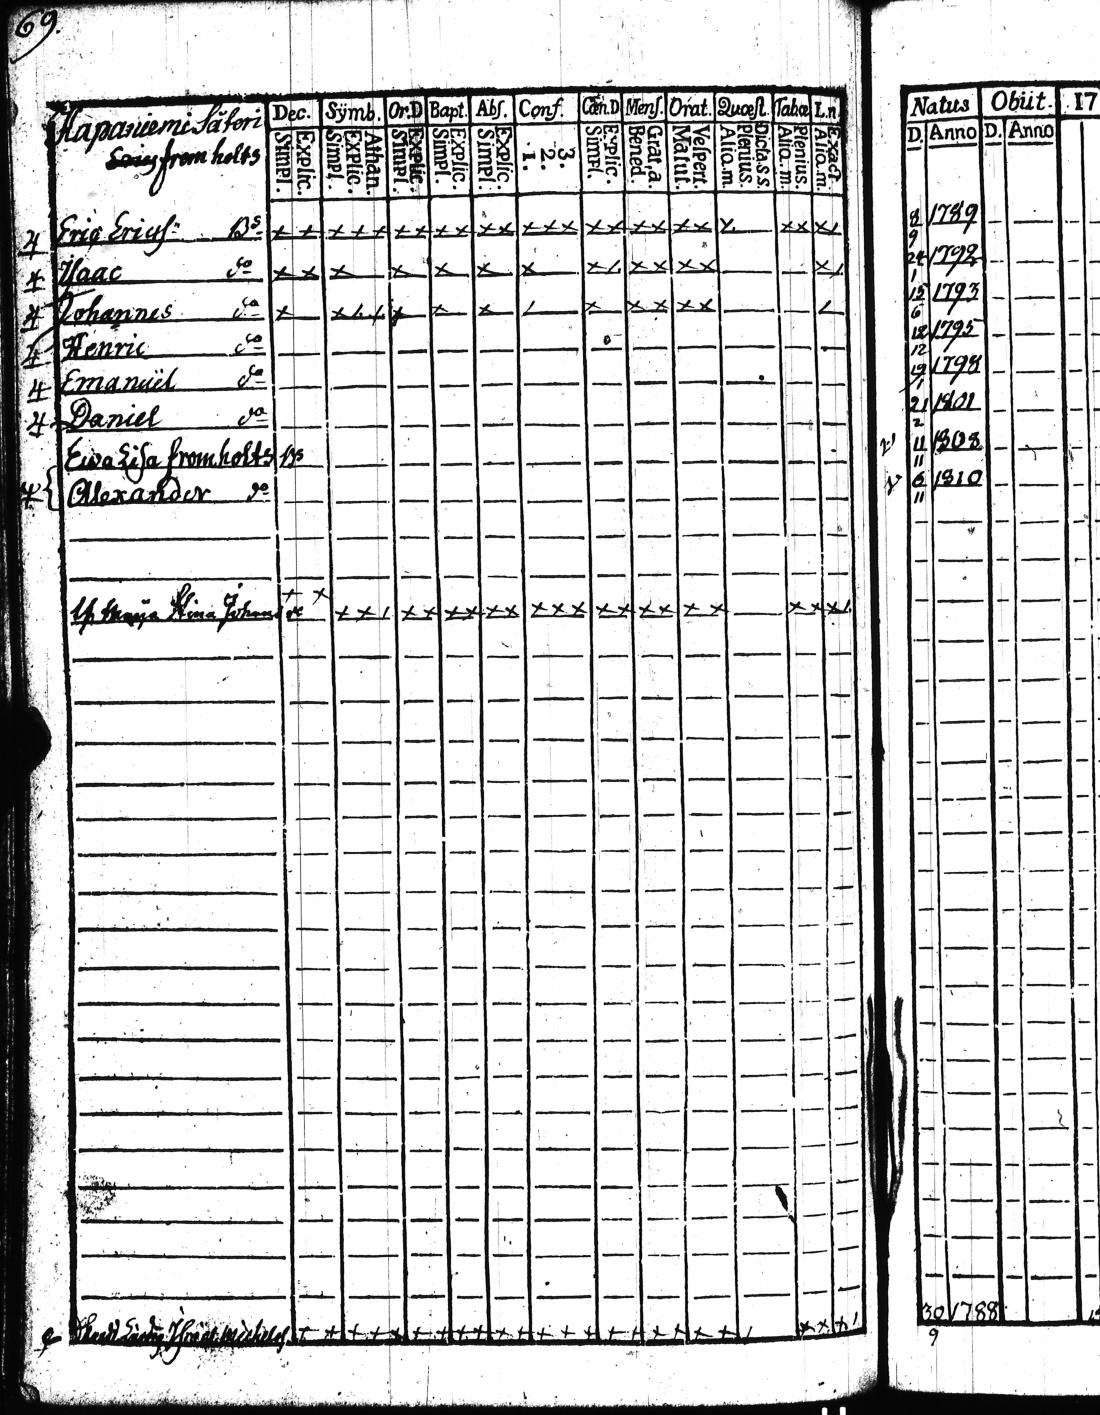 69.
Hapaniemi Säteri
fromholts
Dec. Sÿmb. Or.D Bapt. Abſ. Conf. Cœn.D Menſ. Orat. Quœſt. Tabœ L.n.
Simpl. Explic. Simpl. Explic. Athan. Simpl. Explic. Simpl. Explic. Simpl. Explic. 1. 2. 3. Simpl. Explic. Bened. Grat.a. Matut. Veſpert. Alio.m. Plenius. Dicta s.s. Alio.m. Plenius. Alio.m. Exact.
Natus Obiit. 17
D. Anno D. Anno
Eric Ericſ: Bs 8 9 1789
Iſaac do 24 1 1792
Johannes do 15 6 1793
Henric do 12 12 1795
Emanuël do 19 1 1798
Daniel do 21 2 1801
Ewa Liſa fromholts Bs 11 11 1808
Alexander do 6 11 1810
Stina Johans
30 9 1788